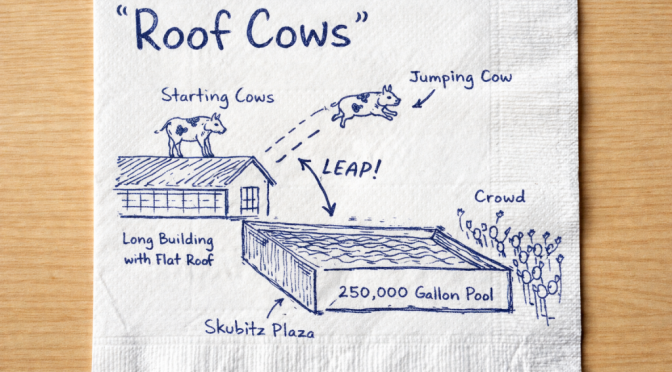 “Roof Cows”
Jumping Cow
Starting Cows
LEAP!
Crowd
Long Building
with Flat Roof
250,000 Gallon Pool
Skubitz Plaza